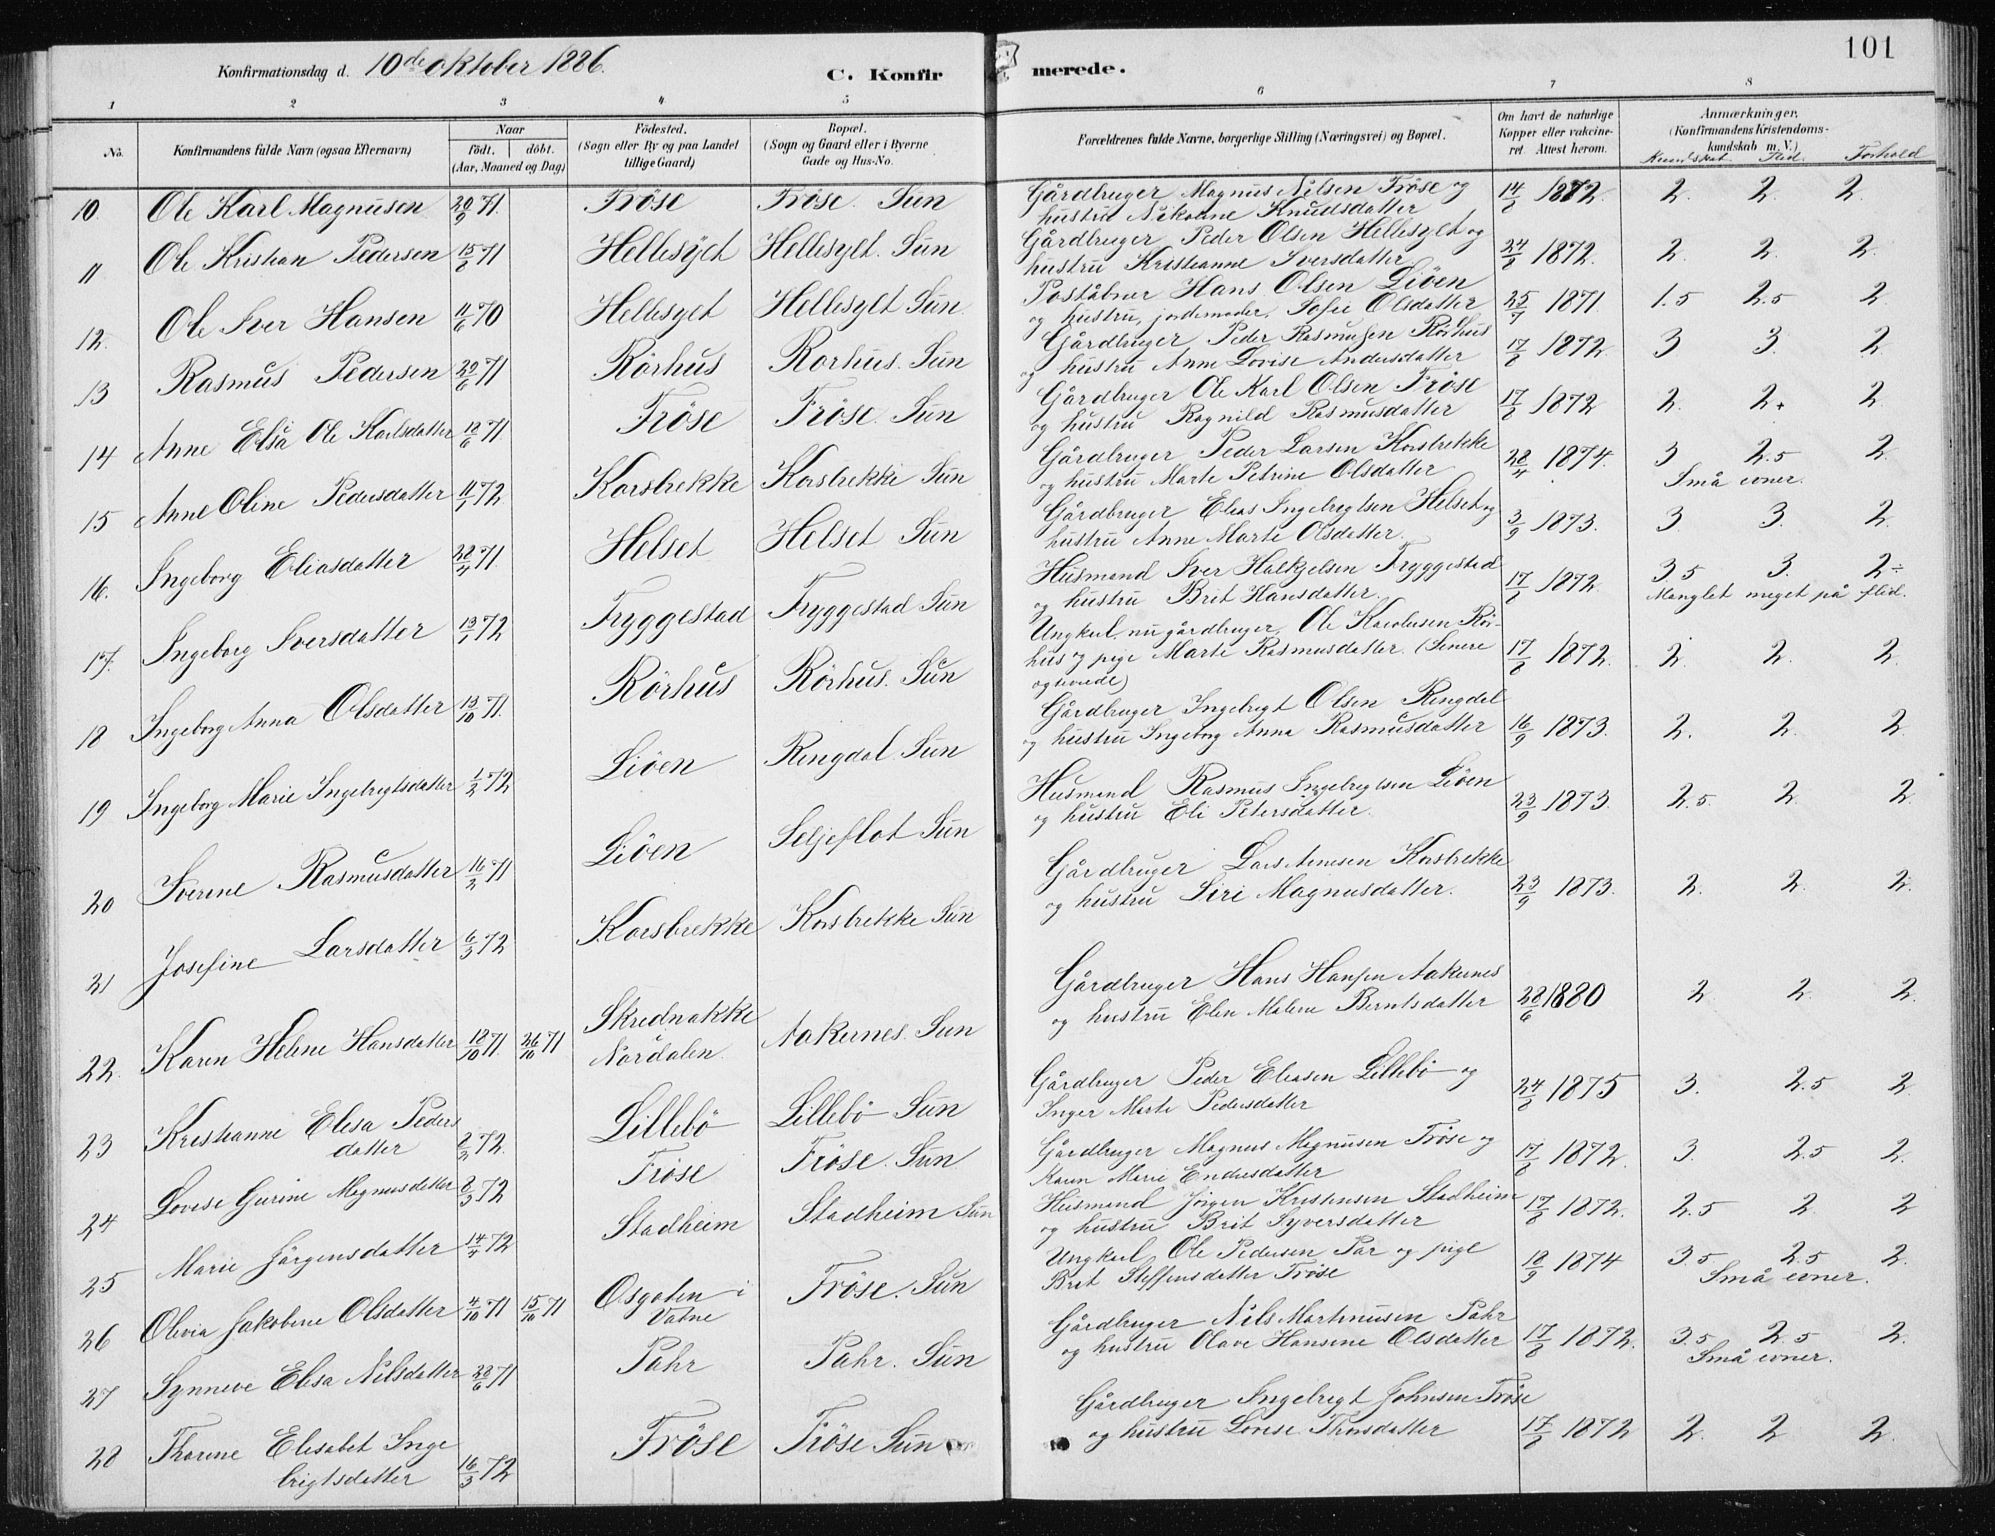 101
Konfirmationsdag d. 10de oktober 1886.
C. Konfirmerede.
1 2 3 4 5 6 7 8
No.
Konfirmandens fulde Navn (ogsaa Efternavn)
Naar
födt. döbt.
(Aar, Maaned og Dag)
Födested.
(Sogn eller By og paa Landet
tillige Gaard)
Bopæl.
(Sogn og Gaard eller i Byerne
Gade og Hus-No.
Forældrenes fulde Navne, borgerlige Stilling (Næringsvei) og Bopæl.
Om havt de naturlige
Kopper eller vakcineret
Attest herom.
Anmærkninger.
(Konfirmandens Kristendomskundskab
m. V.)
Kundskab. Flid. Forhold
10. Ole Karl Magnusen 20/9 71. Fröse Fröse. Sun Gårdbruger Magnus Nilsen Fröse og 14/8 1872. 2. 2. 2.
hustru Nikoline Knudsdatter
11 Ole Kristian Pedersen 15/8 71 Hellesylt Hellesylt. Sun Gårdbruger Peder Olsen Hellesylt og 24/8 1872. 2. 2. 2.
hustru Kristianne Iversdatter
12. Ole Iver Hansen 11/6 70 Hellesylt Hellesylt Sun. Poståbner Hans Olsen Liöen 25/7 1871. 1.5 2.5 2.
og hustru, jordemoder, Sofie Olsdatter
13 Rasmus Pedersen 20/6 71 Rörhus Rorhus. Sun Gårdbruger Peder Rasmusen Rörhus 17/8 1872 3 3. 2.
og hustru Anne Lovise Andersdatter
14 Anne Elsa Ole Karlsdatter 18/6 71 Fröse Fröse. Sun Gårdbruger Ole Karl Olsen Fröse 17/8 1872 2. 2+ 2.
og hustru Ragnild Rasmusdatter
15 Anne Oline Pedersdatter 11/1 72 Korsbrekke Korsbrekke Sun Gårdbruger Peder Larsen Korsbrekke 28/4 1874. 3 2.5 2.
og hustru Marte Petrine Olsdatter Små evner.
16. Ingeborg Eliasdatter 28/4 71. Helset Helset Sun Gårdbruger Elias Ingebrigtsen Helset og 3/9 1873. 3 3. 2.
hustru Anne Marte Olsdatter.
17. Ingeborg Iversdatter 13/1 72 Tryggestad Tryggestad Sun Husmand Iver Halkjelsen Tryggestad 17/8 1872. 3.5 3. 2÷
og hustru Brit Hansdatter. Manglet meget på flid.
18 Ingeborg Anna Olsdatter 13/10 71. Rörhus Rörhus. Sun Ungkarl, nu gårdbruger, Ole Karolusen Rörhus 17/8 1872. 2. 2. 2.
og pige Marte Rasmusdatter. (Senere
egteviede)
19 Ingeborg Marie Ingebrigtsdatter 1/2 72 Liöen Ringdal Sun Gårdbruger Ingebrigt Olsen Ringdal 16/9 1873. 2. 2. 2.
og hustru Ingeborg Anna Rasmusdatter
20 Iverine Rasmusdatter 16/2 71 Liöen Seljeflot Sun Husmand Rasmus Ingebrigtsen Liöen 23/9 1873. 2.5. 2 2.
og hustru Eli Petersdatter.
21 Josefine Larsdatter 6/3 72 Korsbrekke Korsbrekke Sun Gårdbruger Lars Arnesen Korsbrekke 23/9 1873. 2. 2. 2.
og hustru Siri Magnusdatter.
22. Karen Helene Hansdatter 18/10 71. 26/10 71 Skrednakke Aakernes. Sun Gårdbruger Hans Hansen Aakernes 28/6 1880 2. 2. 2.
i Nordalen. og hustru Elen Malene Berntsdatter
23 Kristianne Elisa Peders 8/2 72. Lillebö Lillebö Sun Gårdbruger Peder Eliasen Lillebö og 24/8 1875 3. 2.5 2.
datter Inger Marte Pedersdatter
24 Lovise Gurine Magnusdatter 8/3 72 Fröse Fröse. Sun Gårdbruger Magnus Magnusen Fröse og 17/8 1872. 3. 2.5 2.
Karen Marie Endresdatter
25 Marie Jörgensdatter 14/4 72 Stadheim Stadheim Sun Husmand Jörgen Kristensen Stadheim 17/8 1872. 2.5 2. 2
og hustru Brit Syversdatter
26 Olivia Jakobine Olsdatter 4/10 71 15/10 71 Osgoten i Fröse. Sun Ungkarl Ole Pedersen Par og pige 18/9 1874 3.5 2.5 2.
Vatne Brit Steffensdatter Fröse Små evner.
27 Synneve Elisa Nilsdatter 28/6 71 Pahr Pahr. Sun Gårdbruger Nils Martinusen Pahr 17/8 1872. 3.5 2.5 2.
og hustru Olave Hansine Olsdatter Små evner.
28 Thorine Elisabet Inge 16/3 72 Fröse Fröse Sun Gårdbruger Ingebrigt Johnsen Fröse 17/8 1872 2. 2 2.
brigtsdatter og hustru Lovise Thorsdatter